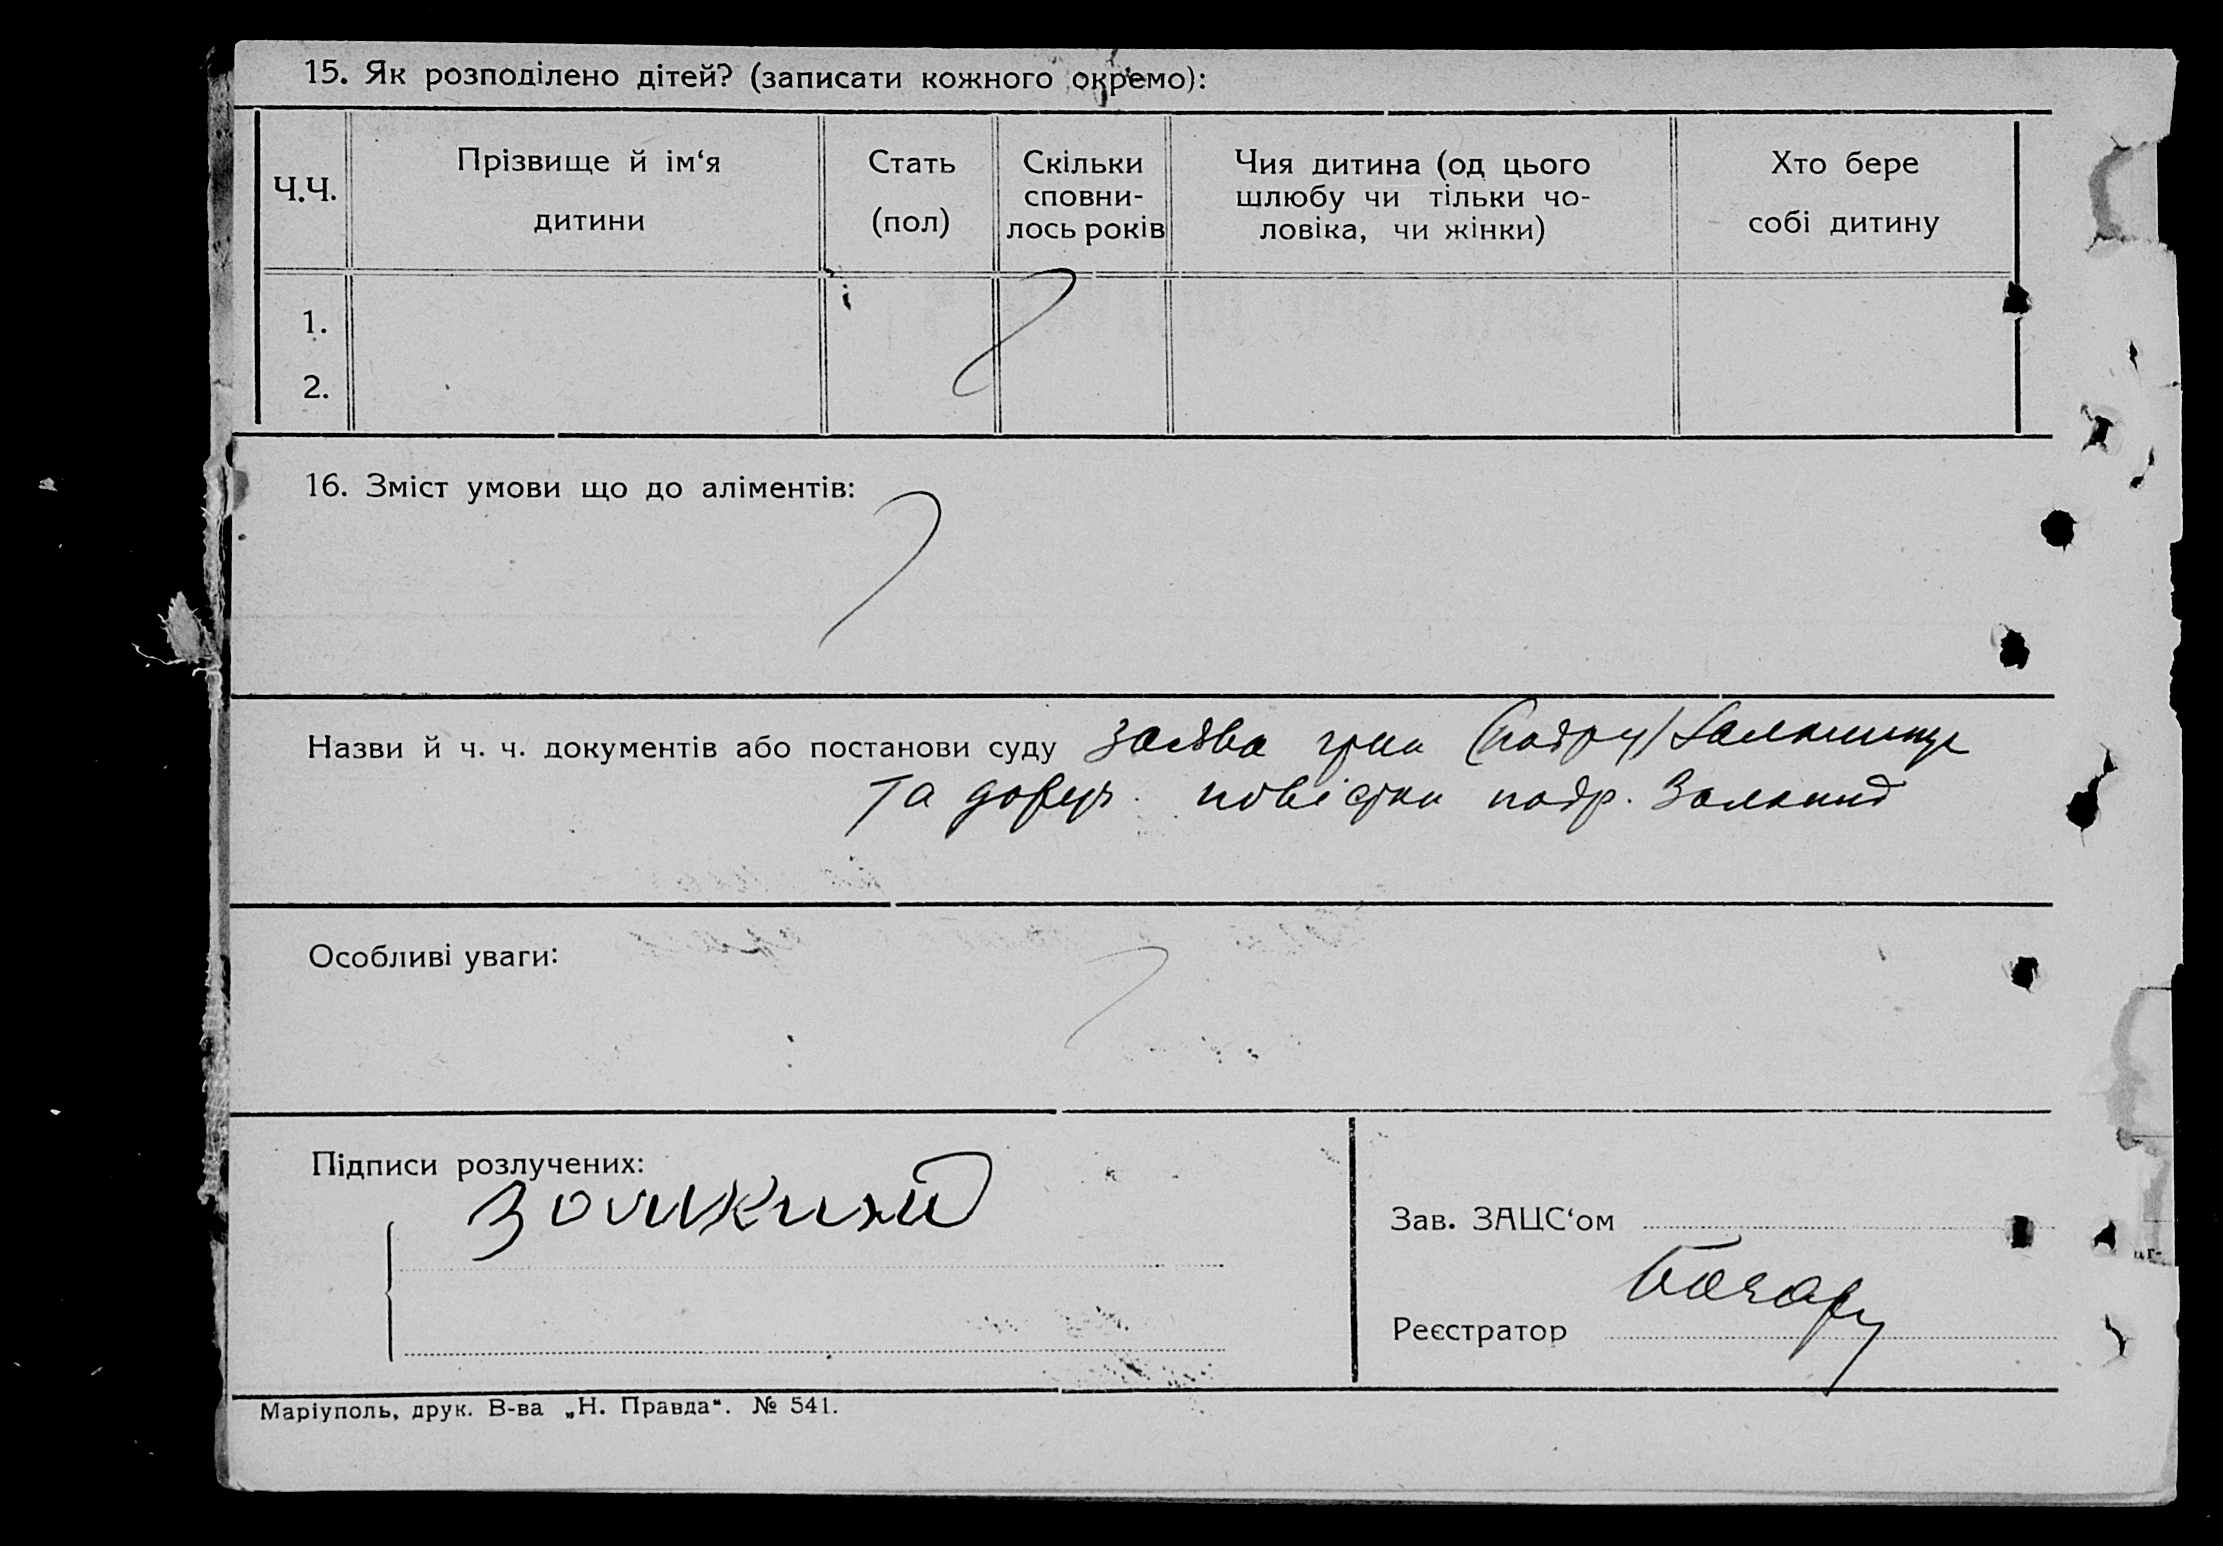 15. Як розподілено дітей? (записати кожного окремо):
Ч.Ч.
Прізвище й ім‘я
дитини
Стать
(пол)
Скільки
сповни-
лось років
Чия дитина (од цього
шлюбу чи тільки чо-
ловіка, чи жінки)
Хто бере
собі дитину
1.
2.
16. Зміст умови що до аліментів:
Назви й ч. ч. документів або постанови суду заява
та повістки
Особливі уваги:
Підписи розлучених:
Зав. ЗАЦС‘ом
Реєстратор
Маріуполь, друк. В-ва „Н. Правда“. № 541.